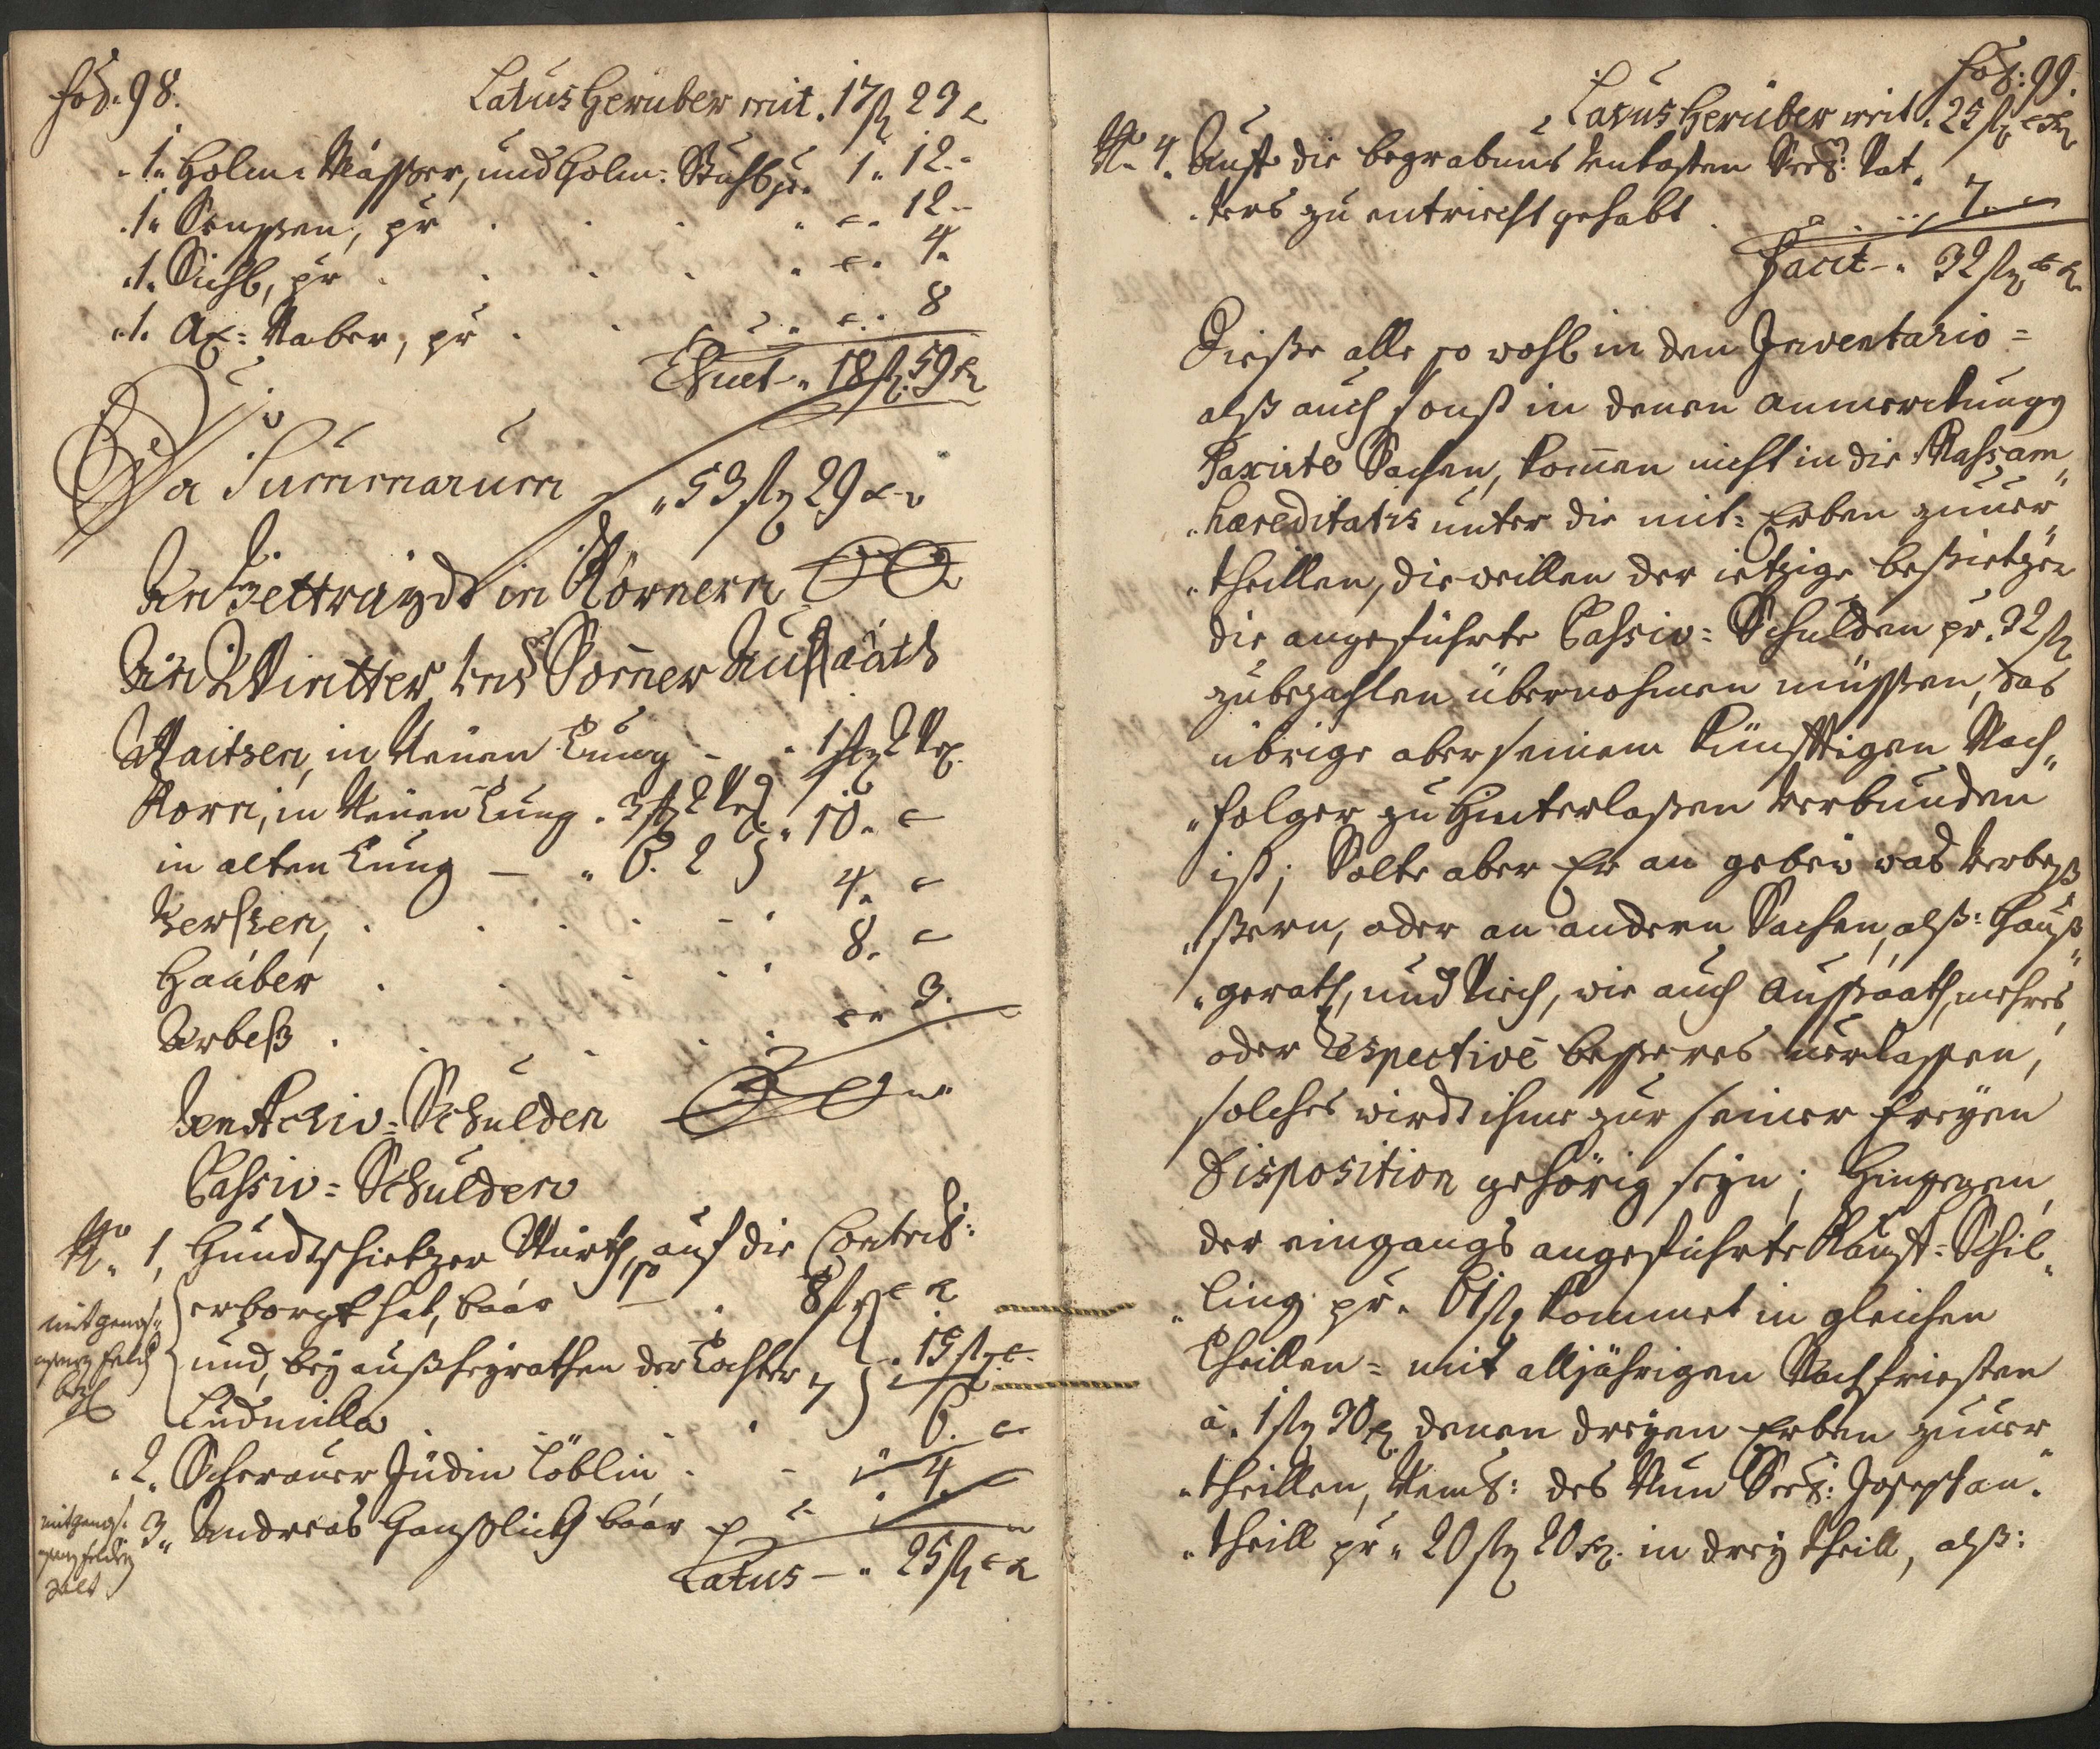 Fol: 98.
Latus herüber mit 17 fl 23 x
1. Holm: Mässer, und Holm: Stuhl pr. 1. 12.
1. Senssen, pr 12
1. Sichl, pr 4.
1. Ax: Naber, pr 8
Thuet 18 fl 59 x
Summa Summarum 53 fl 29 x
An Gettraydt in Körnern
An Wintter und Somer Aussaath
Waitzen, in Neuen Tung
Korn, in Neuen Tung
in alten Tung 6. 2 } 10.
Gersten, 4.
Haaber 8.
Arbeß 3.
An Activ-Schulden
Passiv-Schulden
No. 1, auf die Contrib:
erborgt hat, baar 8 fl
und, bey außheyrathen der Tochter 7
Ludmilla 6.
2. Scherauer Jüdin Löblin 4.
3. Andreas Haußlich baar
Latus 25 fl
Fol: 99.
Latus herüber mit 25 fl
No. 4. Auff die begrabnus Seel: Vat
ters zu entricht gehabt 7.
Facit 32 fl
Dieße alle so wohl in den Inventario-
alß auch sonst in denen anmerckungg
Taxirte Sachen, komen nicht in die Massam
haereditatis unter die mit-Erben zuver
theillen, dieweillen der ietzige beßietzer
die angeführte Passiv-Schulden pr. 32 fl
zubezahlen übernohmen müssen, das
übrige aber seinem künfftigen Nach
folger zu hinterlaßen verbunden
ist; Solte aber Er an gebew was verbeß
ßern, oder an andern Sachen, alß: Hauß
gerath, und Viech, wie auch Aussaath, mehres
oder respective besseres verlassen,
solches wirdt ihme zur seiner freyen
Disposition gehörig seyn; Hingegen
der eingangs angeführte Kauff-Schil
ling pr. 61 fl kommet in gleichen
Theillen-mit alljährigen Nachfriesten
à 1 fl 30 x denen dreyen Erben zuver
theillen, Neml: des Nun Seel: Joseph an
theill pr 20 fl 20 x. in drey theill, alß: